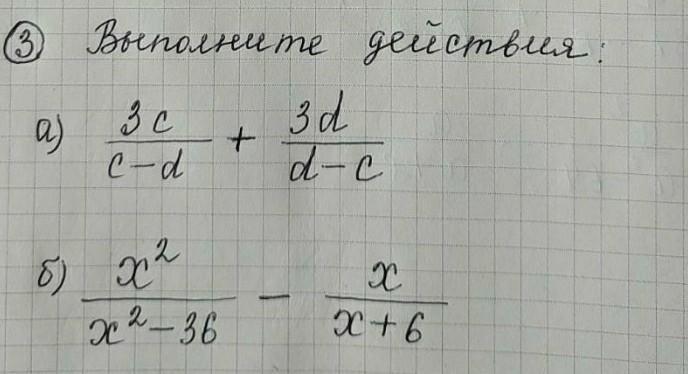 ③ Выполните действия:
а) 3c/(c-d) + 3d/(d-c)
б) x²/(x²-36) - x/(x+6)